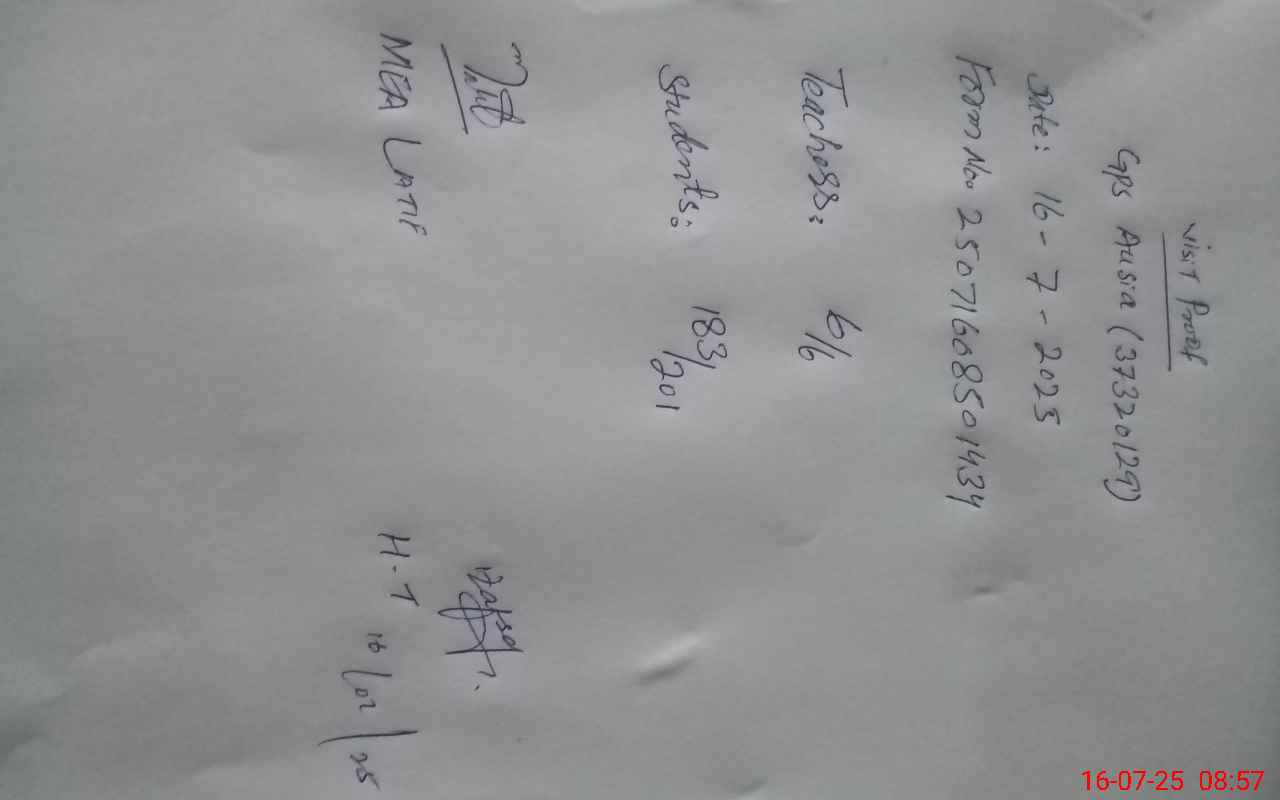 Visit Proof
Gps Ausia (37320129)
Date: 16 - 7 - 2025
Form No. 25071608501434
Teachers: 6/6
Students: 183/201
MEA LATIF
H.T
16/07/25
16-07-25 08:57